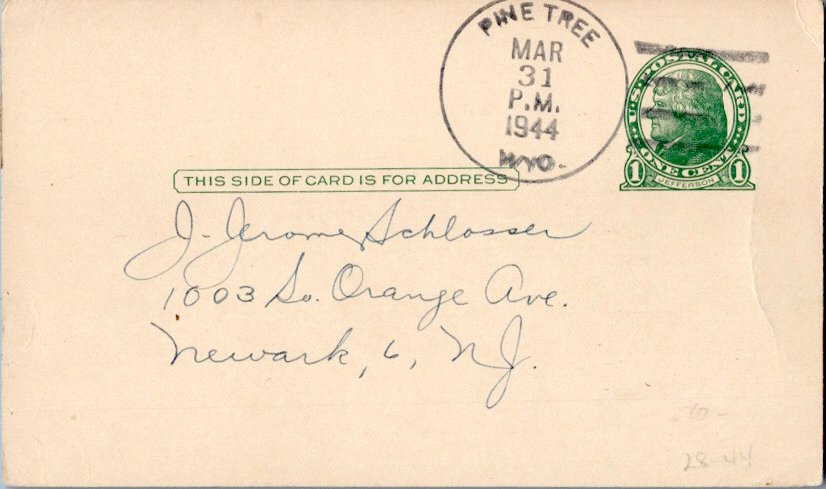 PINE TREE
MAR
31
P.M.
1944
WYO.
U.S. POSTAL CARD
ONE CENT
1 JEFFERSON 1
THIS SIDE OF CARD IS FOR ADDRESS
J. Jerome Schlosser
1003 So. Orange Ave.
Newark, 6, N.J.
28-44